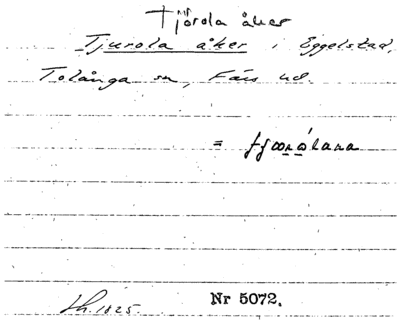 Tjörola åker
Tjurola åker i Eggelstad,
Tolånga sn, Färs hd.
=
Lh. 1825. Nr 5072.